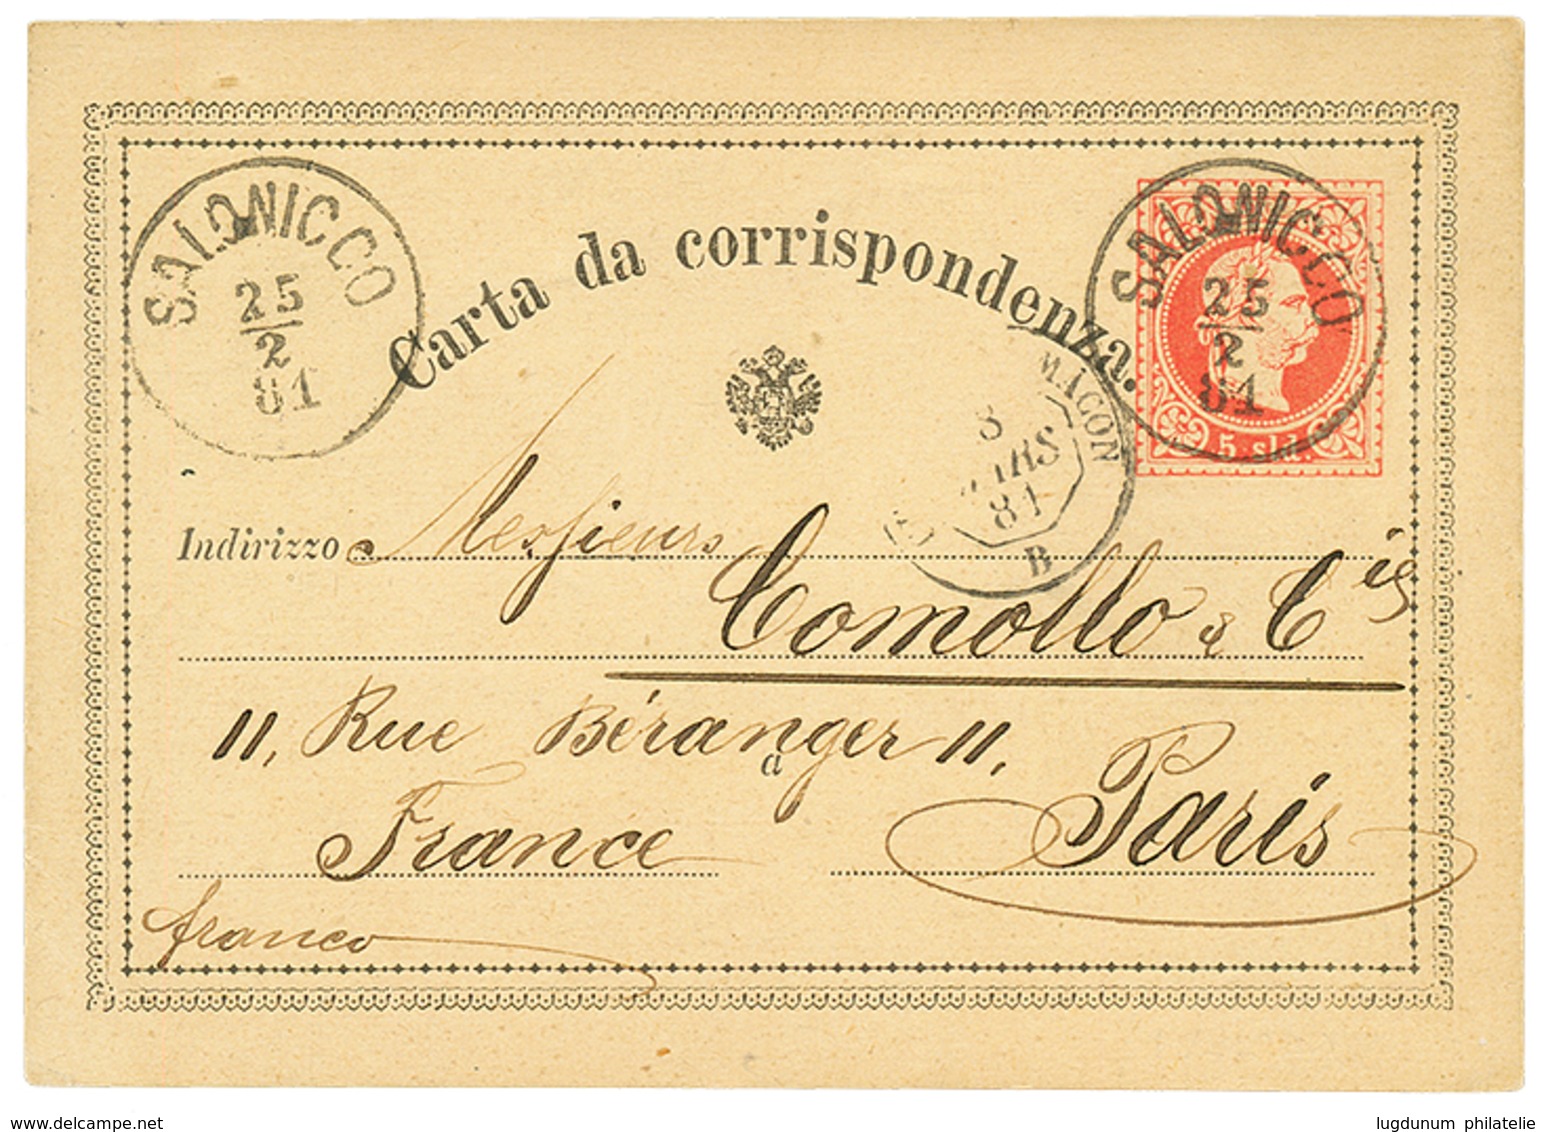 SALONICCO
25
2
81
Carta da corrispondenza.
SALONICCO
25
2
81
5 sld.
MACON
3
MARS
81
B
Indirizzo Messieurs
Comollo & Cie
11, Rue Béranger 11,
a
France Paris
franco
www.delcampe.net
lugdunum philatelie